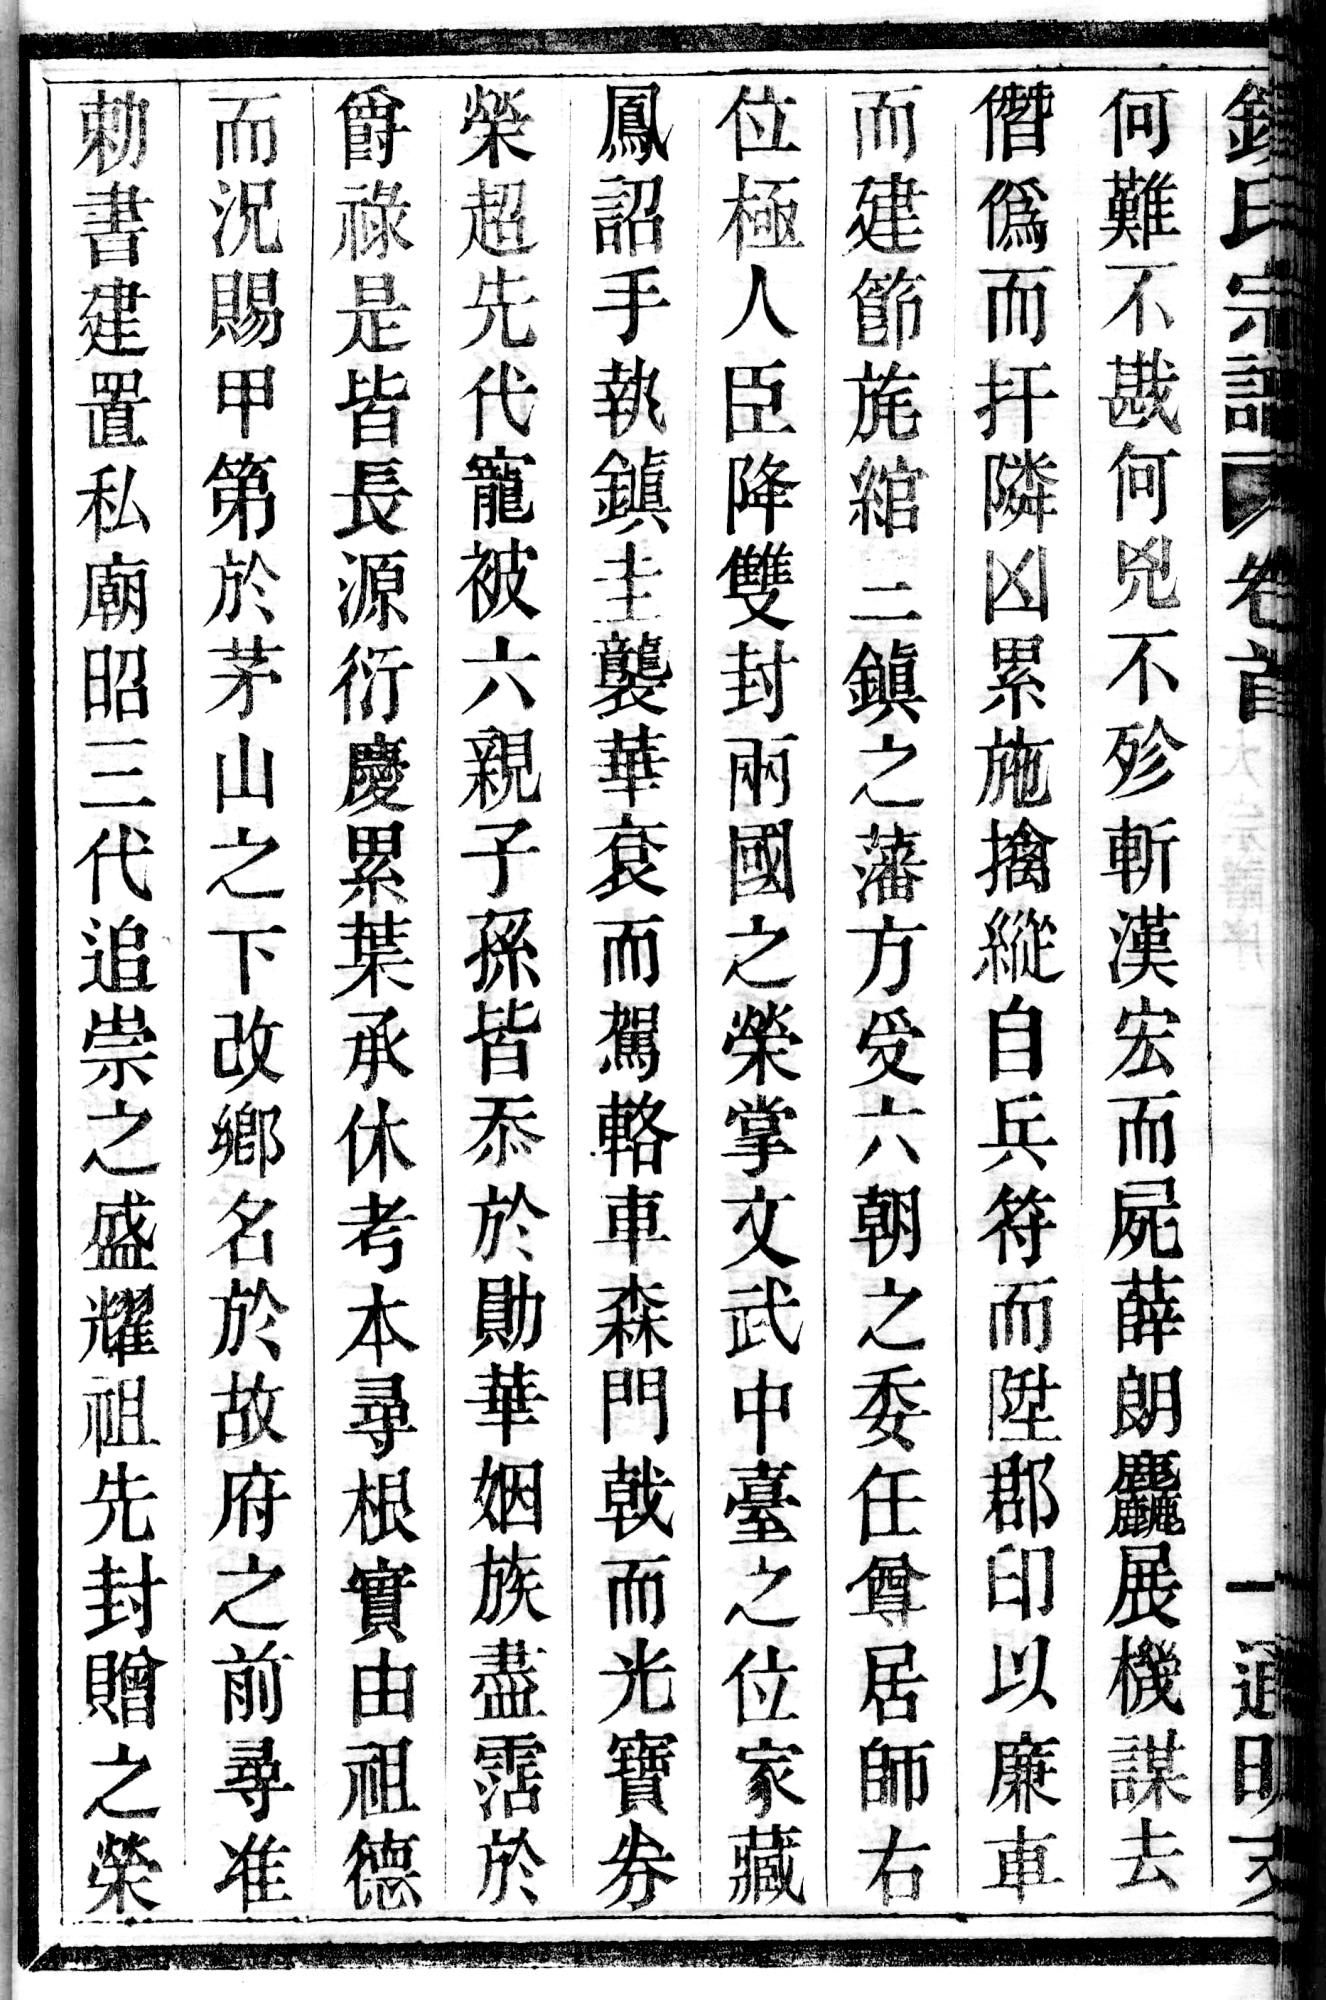 錢氏宗譜 卷首 一
何難不戡何兇不殄斬漢宏而屍薛朗麤展機謀去
僭僞而扞隣凶累施擒縱自兵符而陞郡印以廉車
而建節旄綰二鎮之藩方受六朝之委任尊居師右
位極人臣降雙封兩國之榮掌文武中臺之位家藏
鳳詔手執鎮圭襲華袞而駕輅車森門戟而光寶券
榮超先代寵被六親子孫皆忝於勛華姻族盡霑於
爵祿是皆長源衍慶累葉承休考本尋根實由祖德
而況賜甲第於茅山之下改鄉名於故府之前尋准
勑書建置私廟昭三代追崇之盛耀祖先封贈之榮